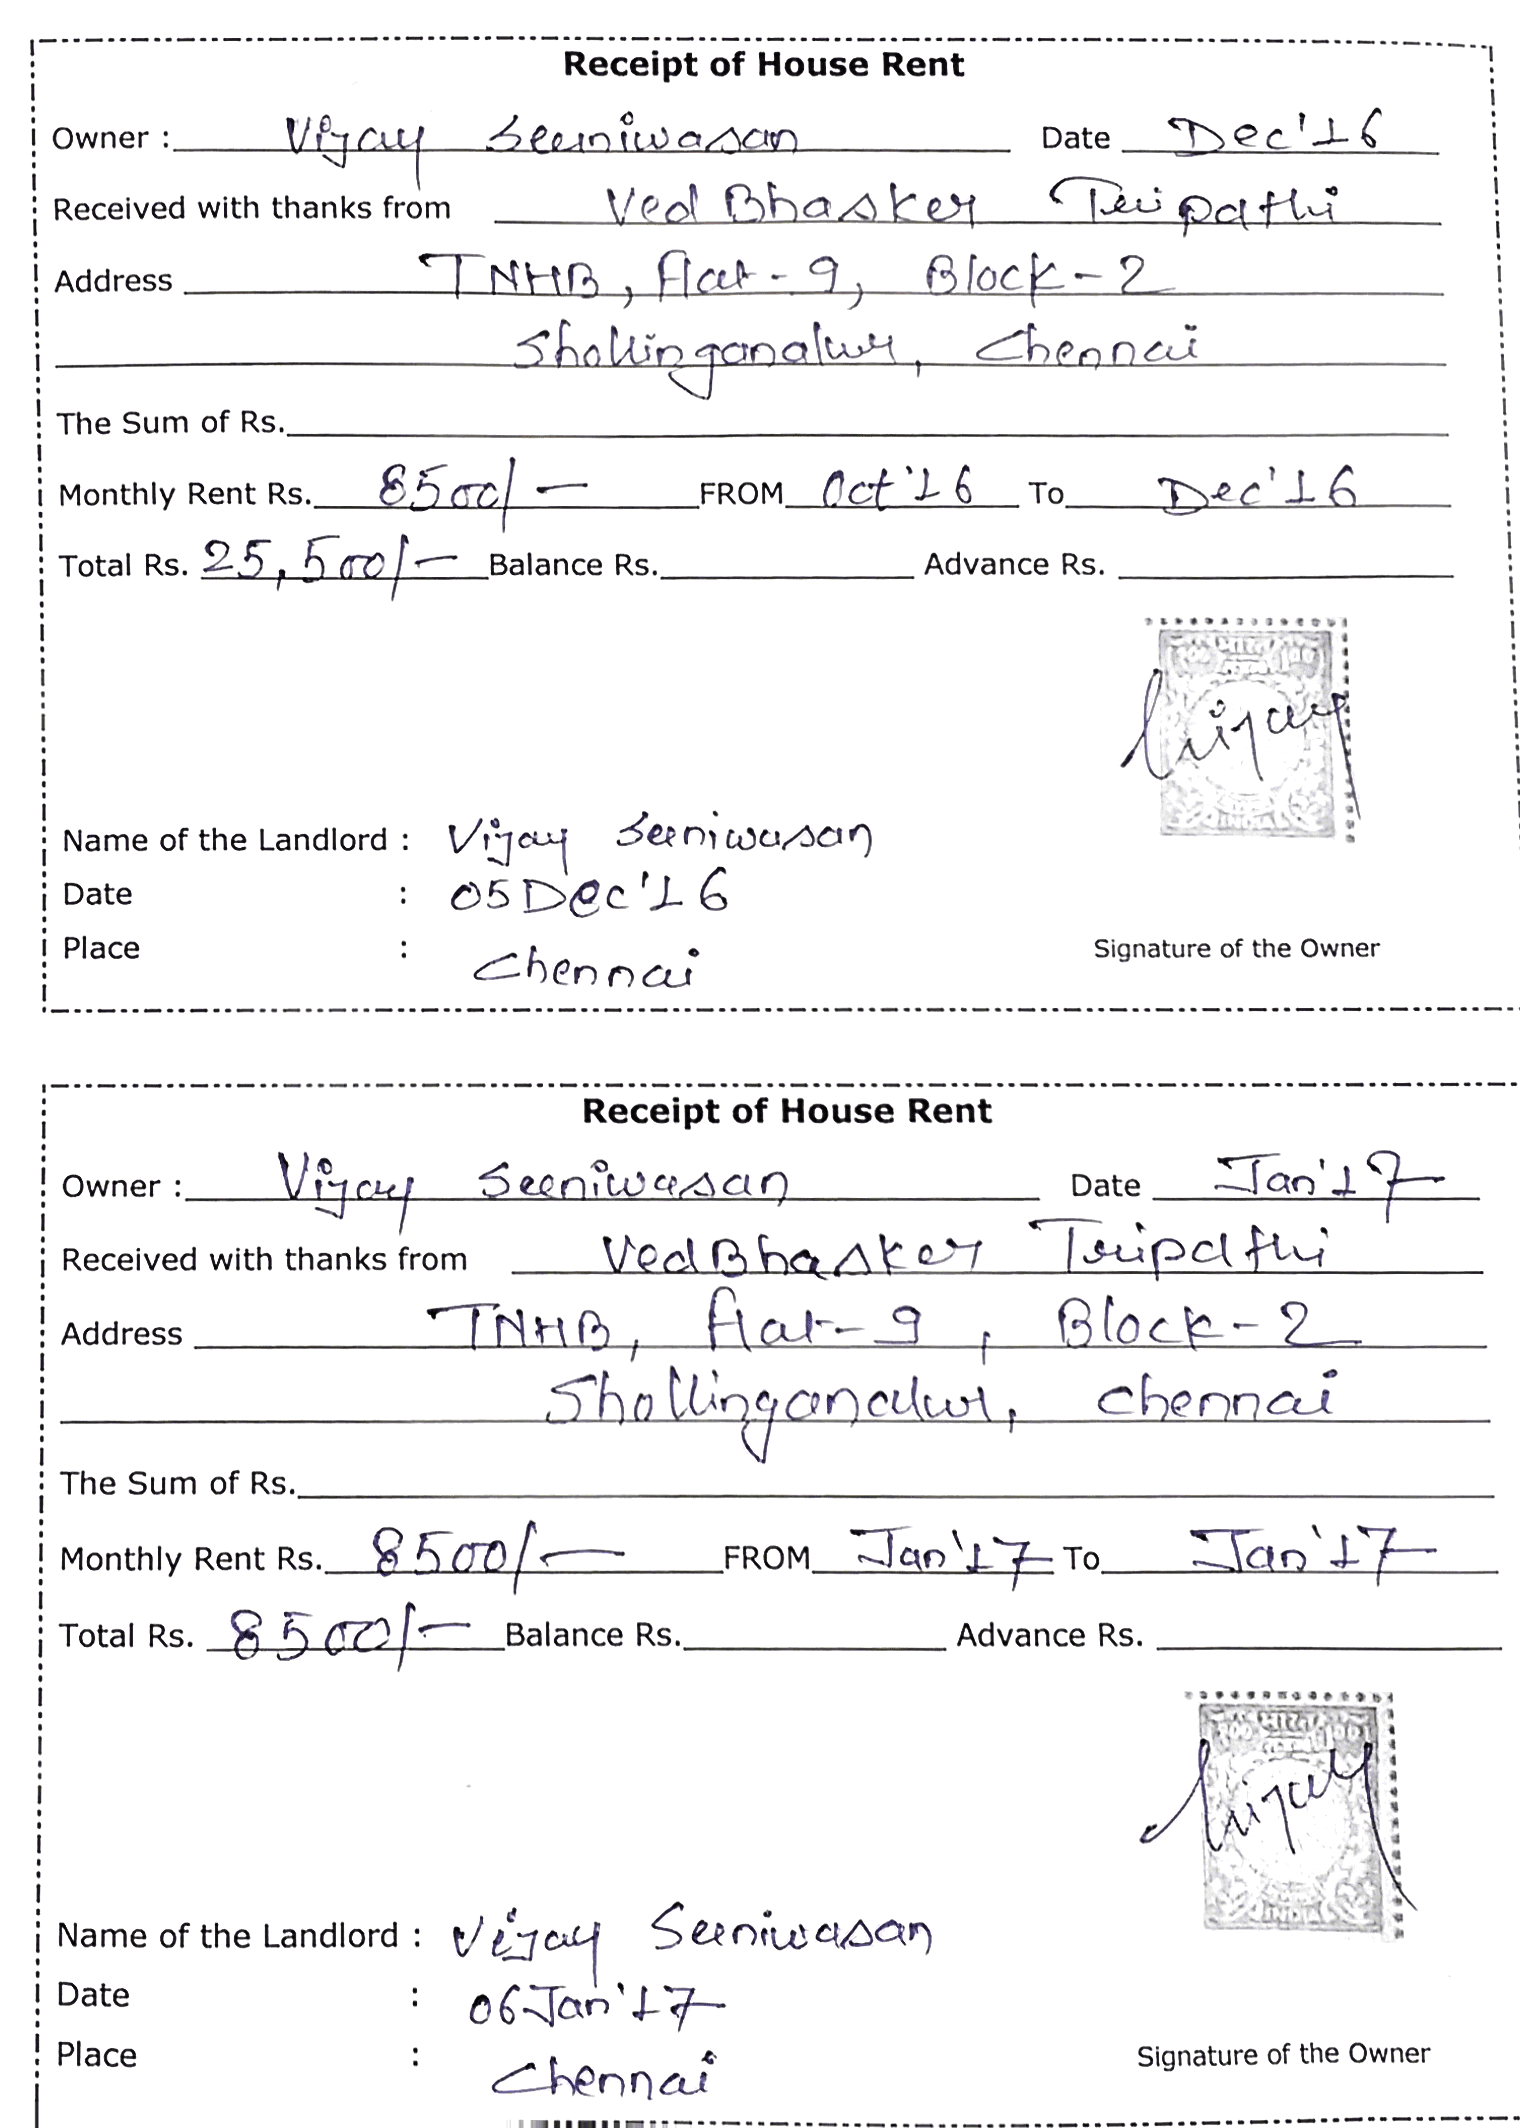 Receipt of House Rent
Owner : Vijay Seeniwasan Date Dec'16
Received with thanks from Ved Bhasker Tripathi
Address TNHB, flat-9, Block-2
Shollinganalur, Chennai
The Sum of Rs.
Monthly Rent Rs. 8500/- FROM Oct'16 To Dec'16
Total Rs. 25,500/- Balance Rs. Advance Rs.
Vijay
INDIA
Name of the Landlord : Vijay Seeniwasan
Date : 05 Dec'16
Place : Chennai
Signature of the Owner
Receipt of House Rent
Owner : Vijay Seeniwasan Date Jan'17
Received with thanks from Ved Bhasker Tripathi
Address TNHB, flat-9, Block-2
Shollinganalur, Chennai
The Sum of Rs.
Monthly Rent Rs. 8500/- FROM Jan'17 To Jan'17
Total Rs. 8500/- Balance Rs. Advance Rs.
Vijay
INDIA
Name of the Landlord : Vijay Seeniwasan
Date : 06 Jan'17
Place : Chennai
Signature of the Owner